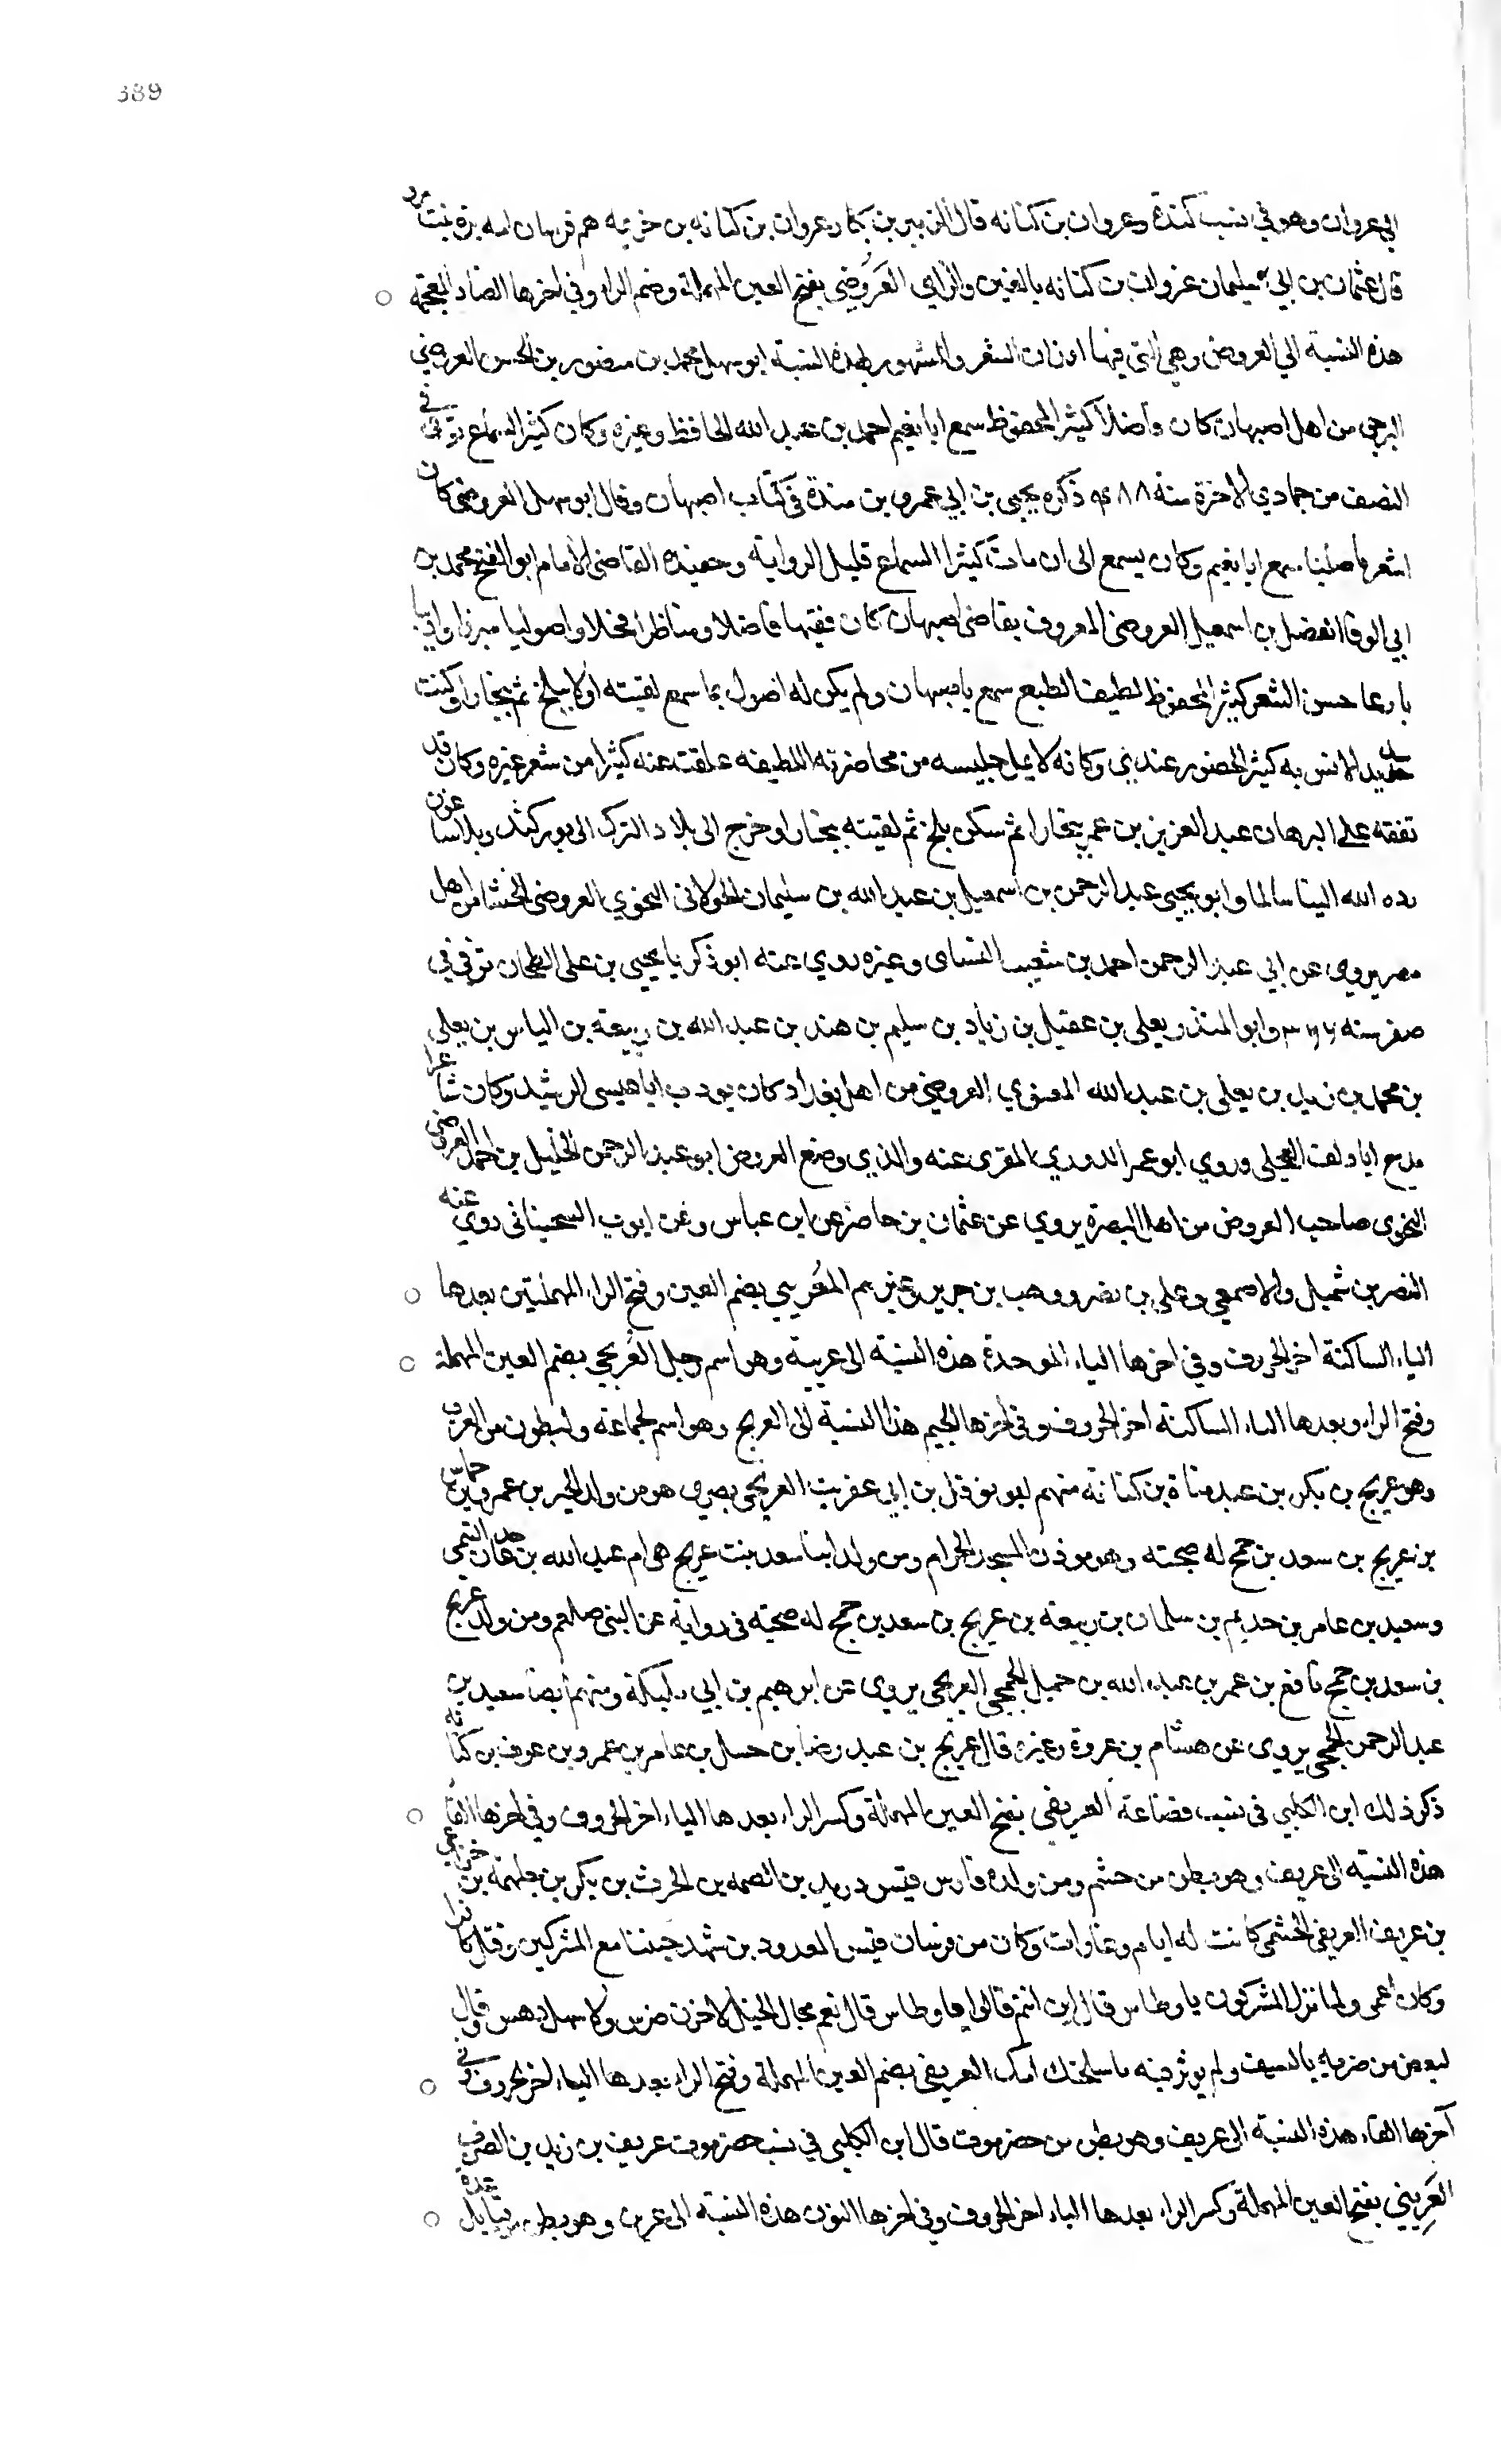 389
ابي عروان وهو في نسب كندة وعروان بن كنانه قال الزبير بن بكار وعروان بن كنانه بن خزيمه هم قرسان امه برة بنت مر
قال عثمان بن ابي سليمان غزوان بن كنانه بالغين والزاي العَروُضِي بفتح العين المهملة وضم الراء وفي اخرها الضاد المعجمه
هذه النسبة الي العروض وهي التي فيها اوزان الشعر والمشهور بهذه النسبة ابو سهل محمد بن منصور بن الحسن العروضي
البرجي من اهل اصبهان كان فاضلا كثير المحفوظ سمع ابا نعيم احمد بن عبد الله الحافظ وغيره وكان كثير السماع توفي في
النصف من جمادي الاخرة سنه ٤٨٨ ذكره يحيى بن ابي عمرو بن مندة في كتاب اصبهان وقال ابو سهل العروضي كان
اشعر باصلنا سمع ابا نعيم وكان يسمع الى ان مات كثير السماع قليل الرواية وحفيده القاضي الامام ابو الفتح محمد بن
ابي الوفا الفضل بن اسمعيل العروضي المعروف بقاضي اصبهان كان فقيها فاضلا ومناظرا فحلا واصوليا مبرزا
بارعا حسن الشعر كثير المحفوظ لطيف الطبع سمع باصبهان ولم يكن له اصول بما سمع لقيته اولا ببلخ ثم ببخارا وكنت
شديد الانس به كثير الحضور عندي وكانه لا يمل جليسه من محاضرته اللطيفه علقت عنه كثيرا من شعر غيره وكان قد
تفقه على البرهان عبد العزيز بن عمر ببخارا ثم سكن بلخ ثم لقيته ببخارا وخرج الى بلاد الترك الى يوركند وبلاساغون
رده الله الينا سالما وابو يحيى عبد الرحمن بن اسمعيل بن عبد الله بن سليمان الخولاني النحوي العروضي الخشاب من اهل
مصر يروي عن ابي عبد الرحمن احمد بن شعيب النساى وغيره روي عنه ابو زكريا يحيى بن علي الطحان توفي في
صفر سنه ٣٦٦ وابو المنذر يعلى بن عقيل بن زياد بن سليم بن هند بن عبد الله بن ربيعة بن الياس بن يعلى
بن محمد بن زيد بن يعلى بن عبد الله العنزي العروضي من اهل بغداد كان يودب ابا عيسى الرشيد وكان شاعرا
مدح ابا دلف العجلي وروي ابو عمر الدوري المقرى عنه والذي وضع العروض ابو عبد الرحمن الخليل بن احمد العروضي
النحوى صاحب العروض من اهل البصرة يروي عن عثمان بن حاضر عن ابن عباس وعن ايوب السختيانى روي عنه
النضر بن شميل والاصمعي وعلي بن نصر ووهب بن جرير وغيرهم العُرَيبي بضم العين وفتح الراء المهملتين بعدها
الياء الساكنة اخر الحروف وفي اخرها الباء الموحدة هذه النسبة الى عريبة وهو اسم رجل العُرَيجي بضم العين المهملة
وفتح الراء وبعدها الياء الساكنة اخر الحروف وفي اخرها الجيم هذا النسبة الى العريج وهو اسم لجماعة ولبطون من العرب
وهو عريج بن بكر بن عبد مناة بن كنانة منهم ابو نوفل بن ابي عقرب العريجي بصري هو من ولد الخير بن عمرو بن حماس
بن عريج بن سعد بن جمح له صحبته وهو موذن المسجد الحرام ومن ولد ابنا سعد بنت عريج هى ام عبد الله بن جدعان التيمى
وسعيد بن عامر بن حذيم بن سلمان بن ربيعة بن عريج بن سعد بن جمح له صحبة في رواية عن النبي صلعم ومن ولد عريج
بن سعد بن جمح نافع بن عمر بن عبد الله بن جميل الجمحي العريجي يروى عن ابرهيم بن ابي مليكة ومنهم ايضا سعيد بن
عبد الرحمن الجمحي يروى عن هشام بن عروة وغيره قال عريج بن عبد رضا بن حسل بن عامر بن عمرو بن عوف بن كنانه
ذكر ذلك ابن الكلبي في نسب قضاعة العريفي بفتح العين المهملة وكسر الراء بعدها الياء اخر الحروف وفي اخرها الفاء
هذه النسبة الى عريف وهو بطن من جشم ومن ولده فارس قيس دريد بن الصمه بن الحرث بن بكر بن علقمة بن خزاعي
بن عريف العريفي الجشمي كانت له ايام وغارات وكان من فرسان قيس المعدود بن شهد حنينا مع المشركين وقتل كافرا
وكان أعمى ولما نزل المشركون باوطاس قال اين انتم قالوا باوطاس قال نعم مجال الخيل لا حزن ضرس ولا سهل دهس وقال
لبعض من ضربه بالسيف ولم يوثر فيه ما سلحتك امك العريفي بضم العين المهملة وفتح الراء بعدها الياء اخر الحروف وفي
آخرها الفاء هذه النسبة الى عريف وهو بطن من حضرموت قال ابن الكلبي في نسب حضرموت عريف بن زيد بن الصدف
العَرِيني بفتح العين المهملة وكسر الراء بعدها الياء اخر الحروف وفي اخرها النون هذه النسبة الى عرين وهو بطن من عدة قبايل